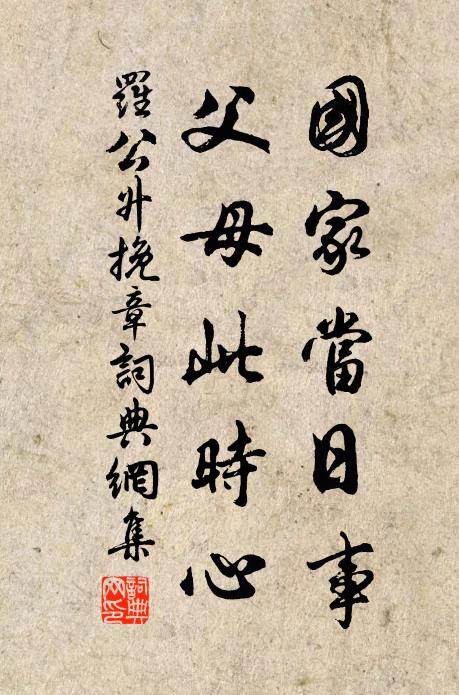 國家當日事
父母此時心
羅公升挽章詞典網集
詞典网印